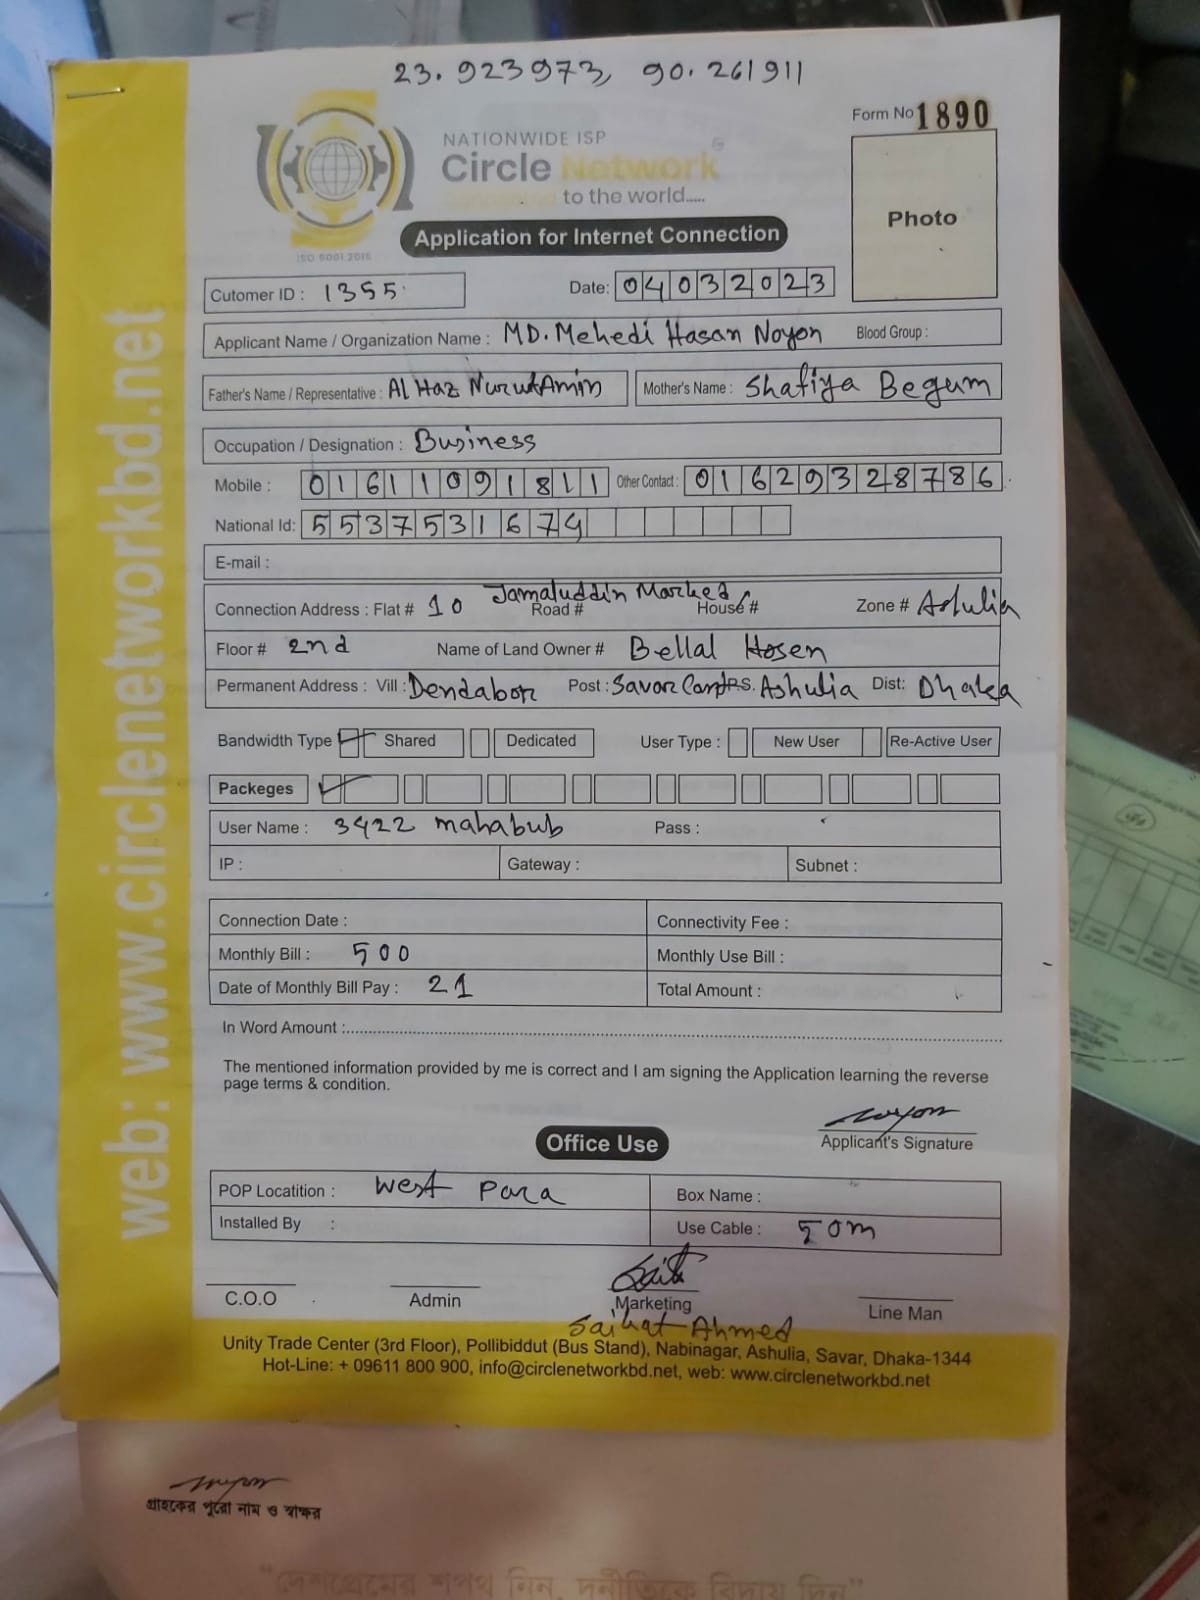 23.923973, 90.261911
Form No 1890
NATIONWIDE ISP
Circle Network
to the world.....
ISO 9001:2015
Photo
Application for Internet Connection
Cutomer ID : 1355
Date: 04032023
Applicant Name / Organization Name : MD. Mehedi Hasan Noyon Blood Group :
Father's Name / Representative : Al Haz Nurul Amin Mother's Name : Shafiya Begum
Occupation / Designation : Business
Mobile : 01611091811 Other Contact : 01629328786
National Id: 5537531674
E-mail :
Connection Address : Flat # 10 Jamaluddin Marked Road # House # Zone # Ashulia
Floor # 2nd Name of Land Owner # Bellal Hosen
Permanent Address : Vill : Dendabor Post : Savar Cant P.S. Ashulia Dist: Dhaka
Bandwidth Type Shared Dedicated User Type : New User Re-Active User
Packeges
User Name : 3422 mahabub Pass :
IP : Gateway : Subnet :
Connection Date : Connectivity Fee :
Monthly Bill : 500 Monthly Use Bill :
Date of Monthly Bill Pay : 21 Total Amount :
In Word Amount :
The mentioned information provided by me is correct and I am signing the Application learning the reverse
page terms & condition.
noyon
Applicant's Signature
Office Use
POP Locatition : West Para Box Name :
Installed By : Use Cable : 50m
C.O.O Admin Marketing Line Man
Saikat Ahmed
Unity Trade Center (3rd Floor), Pollibiddut (Bus Stand), Nabinagar, Ashulia, Savar, Dhaka-1344
Hot-Line: + 09611 800 900, info@circlenetworkbd.net, web: www.circlenetworkbd.net
web: www.circlenetworkbd.net
noyon
গ্রাহকের পুরো নাম ও স্বাক্ষর
"দেশপ্রেমের শপথ নিন, দুর্নীতিকে বিদায় দিন"